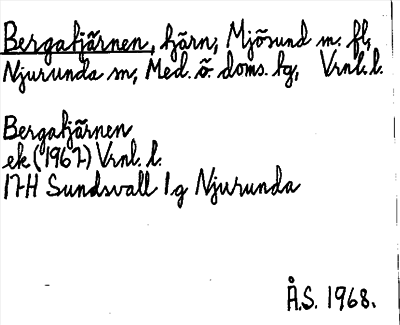 Bergatjärnen, tjärn, Mjösund m. fl.,
Njurunda sn, Med. ö. doms. tg, Vrnl. l.
Bergatjärnen
ek (1967) Vrnl. l.
17H Sundsvall 1g Njurunda
Å.S. 1968.